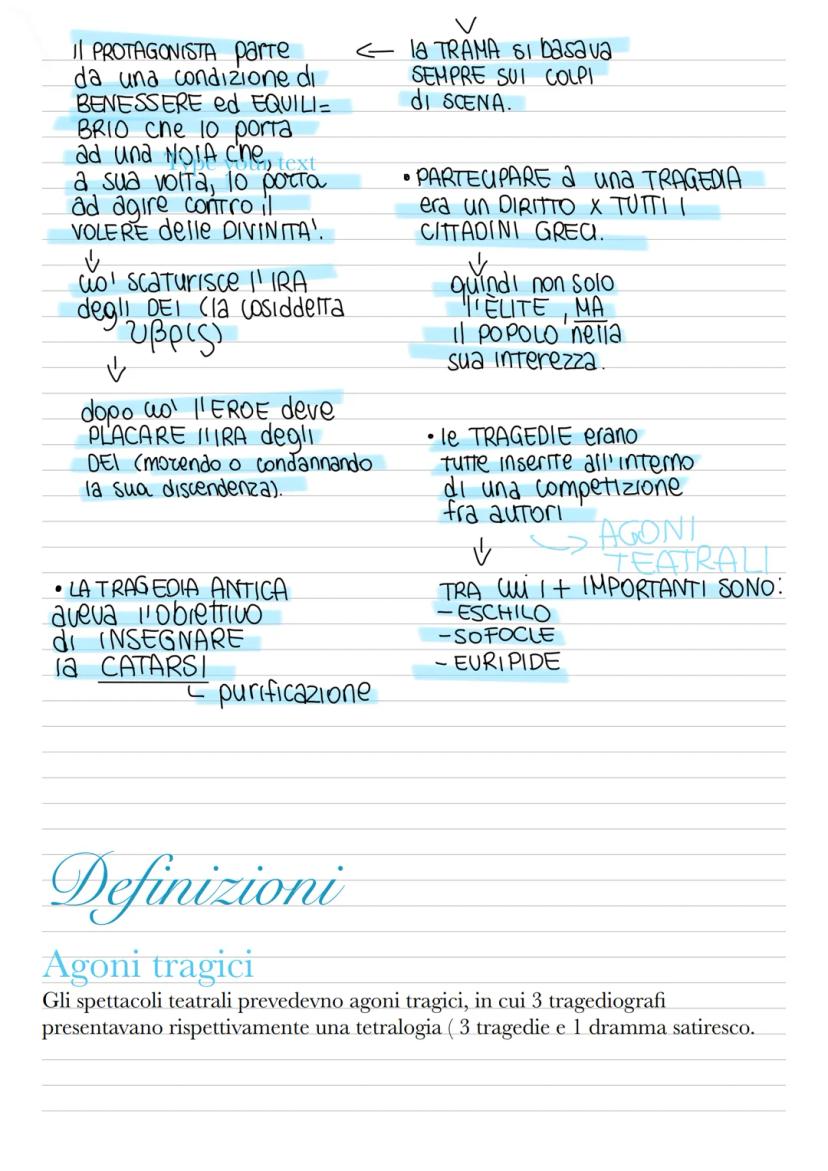 il PROTAGONISTA parte
da una condizione di
BENESSERE ed EQUILI=
BRIO che lo porta
ad una NOIA che,
Type your text
a sua volta, lo porta
ad agire contro il
VOLERE delle DIVINITA'.
↓
cio' scaturisce l'IRA
degli DEI (la cosiddetta
υβρις)
↓
dopo cio' l'EROE deve
PLACARE l'IRA degli
DEI (morendo o condannando
la sua discendenza).
• LA TRAGEDIA ANTICA
aveva l'obiettivo
di INSEGNARE
la CATARSI
purificazione
← la TRAMA si basava
SEMPRE SUI COLPI
di SCENA.
• PARTECIPARE a una TRAGEDIA
era un DIRITTO X TUTTI I
CITTADINI GRECI.
↓
quindi non solo
l'ÉLITE, MA
il POPOLO nella
sua interezza.
• le TRAGEDIE erano
tutte inserite all'interno
di una competizione
fra autori
→ AGONI
TEATRALI
↓
TRA cui i + IMPORTANTI SONO:
- ESCHILO
- SOFOCLE
- EURIPIDE
Definizioni
Agoni tragici
Gli spettacoli teatrali prevedevno agoni tragici, in cui 3 tragediografi
presentavano rispettivamente una tetralogia ( 3 tragedie e 1 dramma satiresco.